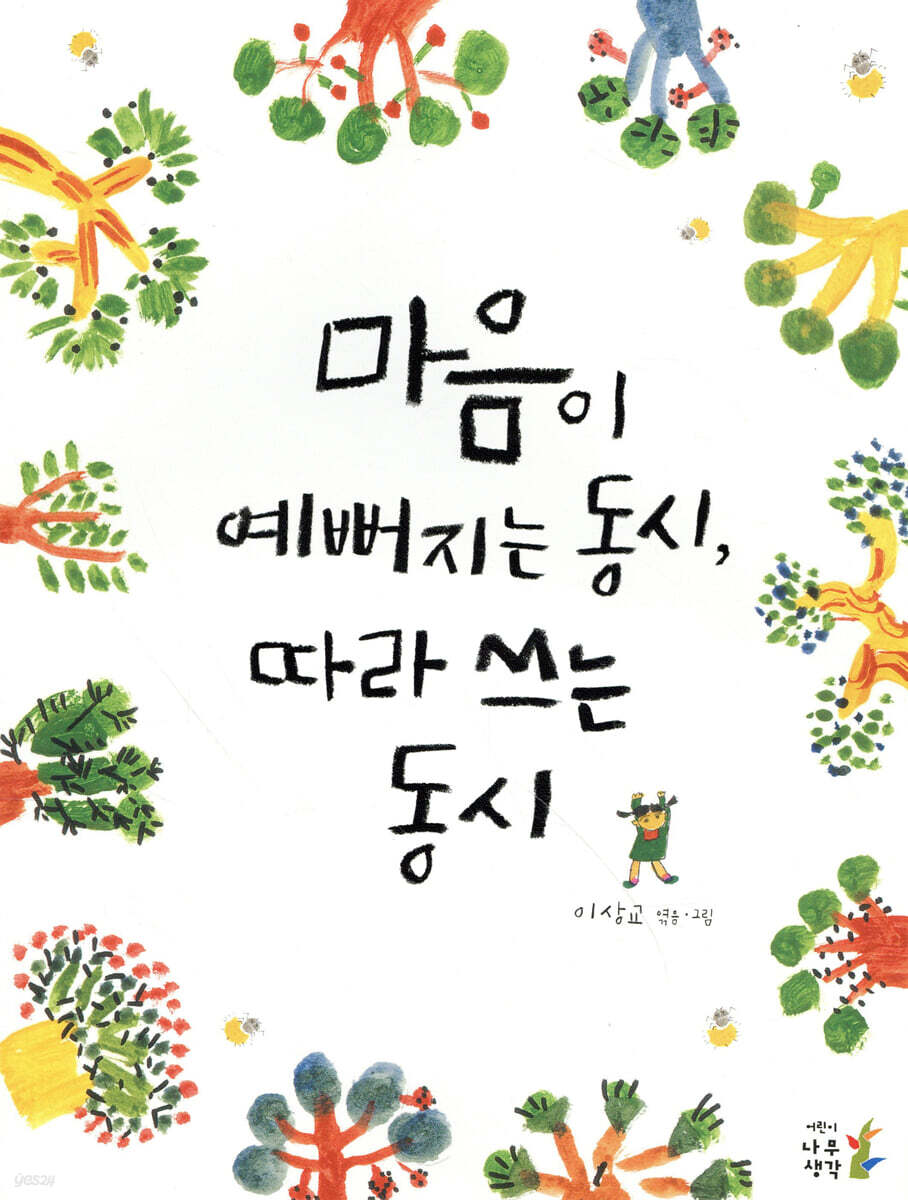 마음이
예뻐지는 동시,
따라 쓰는
동시
이상교 엮음·그림
어린이
나무
생각
yes24